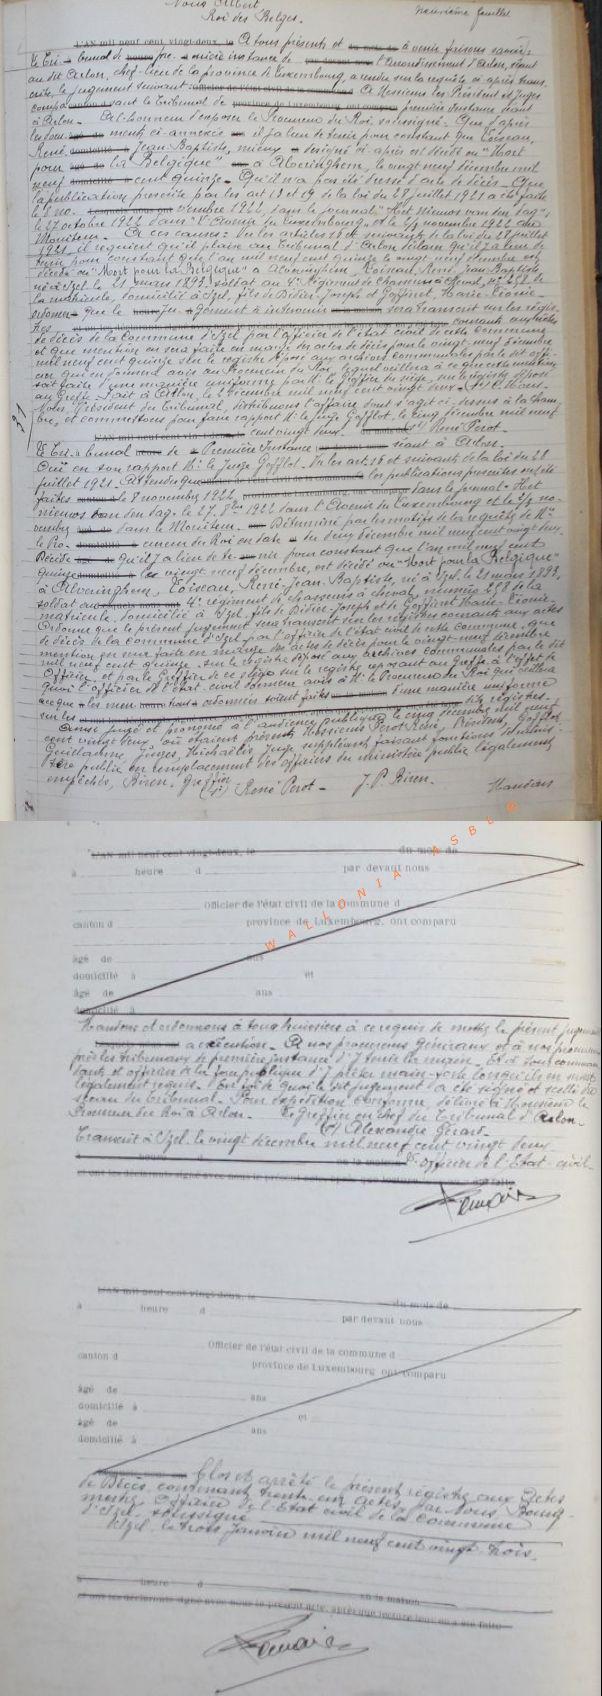 Nous Albert neuvième feuillet
Roi des Belges.
L'AN mil neuf cent vingt-deux, le A tous présents et à venir, faisons savoir:
le Tribunal de première instance de l'arrondissement d'Arlon, séant
au dit Arlon, chef-lieu de la province de Luxembourg, a rendu sur la requête ci-après trans-
crite, le jugement suivant: A Messieurs les Président et Juges
composant le Tribunal de première instance séant
à Arlon. A l'honneur d'exposer le Procureur du Roi, soussigné. Que d'après
les documents ci-annexés il y a lieu de tenir pour constant que Loiseau,
René, Jean, Baptiste, mieux désigné ci-après est décédé ou "Mort
pour la Belgique" à Alveringhem, le vingt neuf décembre mil
neuf cent quinze. Qu'il n'a pas été dressé d'acte de décès. Que
la publication prescrite par les art 18 et 19 de la loi du 28 juillet 1921 a été faite
le 8 novembre 1922, dans le journal "Het Nieuws van den Dag",
le 27 octobre 1922 dans "l'Avenir du Luxembourg" et le 6/7 novembre 1922 au
Moniteur. A ces causes: Vu les articles 16 et suivants de la loi du 28 juillet
1921, il requiert qu'il plaise au Tribunal d'Arlon déclarer qu'il y a lieu de
tenir pour constant que l'an mil neuf cent quinze le vingt-neuf décembre est
décédé ou "Mort pour la Belgique" à Alveringhem, Loiseau, René, Jean, Baptiste,
né à Izel le 21 mars 1893, soldat au 4e Régiment de Chasseurs à cheval, N° 258 de
la matricule, domicilié à Izel, fils de Didier-Joseph et Goffinet, Marie-Léonie.
ordonner que le jugement à intervenir sera transcrit sur les regis-
tres courants aux actes
de décès de la Commune d'Izel par l'officier de l'état civil de cette Commune
et que mention en sera faite en marge des actes de décès pour le vingt-neuf décembre
mil neuf cent quinze sur le registre déposé aux archives communales par le dit offi-
cier qui en donnera avis au Procureur du Roi, lequel veillera à ce que cette mention
soit faite d'une manière uniforme par Mr le Greffier du siège, sur le registre déposé
au Greffe. Fait à Arlon, le 2 décembre mil neuf cent vingt deux.
Nous, Président du Tribunal, distribuons l'affaire dont s'agit ci-dessus à la Cham-
bre, et commettons pour faire rapport Mr le Juge Gofflot. Le cinq décembre mil neuf
31
L'AN mil neuf cent vingt cent vingt deux. (s) René Perot.
Le Tribunal de Première Instance séant à Arlon.
Ouï en son rapport Mr le Juge Gofflot. Vu les art. 16 et suivants de la loi du 28
juillet 1921. Attendu que les publications prescrites ont été
faites le 8 novembre 1922, dans le journal "Het
nieuws van den dag", le 27 8bre 1922 dans l'Avenir du Luxembourg et le 6/7 no-
vembre dans le Moniteur. Déterminé par les motifs de la requête de Mr
le Procureur du Roi en date du deux décembre mil neuf cent vingt deux.
Décide qu'il y a lieu de tenir pour constant que l'an mil neuf cent
quinze le vingt-neuf décembre, est décédé ou "Mort pour la Belgique"
à Alveringhem, Loiseau, René-Jean-Baptiste, né à Izel, le 21 mars 1893,
soldat au 4e régiment de chasseurs à cheval, numéro 258 de la
matricule, domicilié à Izel, fils de Didier-Joseph et de Goffinet Marie-Léonie.
Ordonne que le présent jugement sera transcrit sur les registres courants aux actes
de décès de la Commune d'Izel par l'officier de l'état civil de cette Commune, que
mention en sera faite en marge des actes de décès pour le vingt-neuf décembre
mil neuf cent quinze sur le registre déposé aux archives communales par le dit
Officier, et par le Greffier de ce siège sur le registre reposant au Greffe, à l'effet de
quoi l'officier de l'état-civil donnera avis à Mr le Procureur du Roi qui veillera
à ce que les mentions ordonnées soient faites d'une manière uniforme
sur les dits registres.
Ainsi jugé et prononcé à l'audience publique, le cinq décembre mil neuf
cent vingt deux, où étaient présents Messieurs Perot René, Président, Gofflot,
Guillaume, Juges, Michaëlis, Juge suppléant faisant fonctions de minis-
tère public en remplacement des officiers du ministère public légalement
empêchés, Biren, Greffier.
(s) René Perot - J.P. Biren. Mandons
WALLONIA ASBL ©
L'AN mil neuf cent vingt-deux, le du mois de
à heure d par devant nous
Officier de l'état civil de la commune d
canton d province de Luxembourg, ont comparu
âgé de ans
domicilié à et
âgé de ans
domicilié à
Mandons et ordonnons à tous huissiers à ce requis de mettre le présent jugement
à exécution. A nos procureurs Généraux et à nos procureurs
près les tribunaux de première instance d'y tenir la main. Et à tous comman-
dants et officiers de la force publique d'y prêter main-forte lorsqu'ils en seront
légalement requis. En foi de quoi le dit jugement a été signé et scellé du
sceau du tribunal. Pour expédition conforme délivrée à Monsieur le
Procureur du Roi à Arlon. Le greffier en chef du Tribunal d'Arlon.
(s) Alexandre Gérard.
Transcrit à Izel, le vingt décembre mil neuf cent vingt deux.
L'officier de l'Etat-civil.
L'AN mil neuf cent vingt-deux, le du mois de
à heure d par devant nous
Officier de l'état civil de la commune d
canton d province de Luxembourg ont comparu
âgé de ans
domicilié à et
âgé de ans
domicilié à
Clos et arrêté le présent registre aux Actes
de Décès, contenant trente-un actes, par Nous Bourg-
mestre, Officier de l'Etat civil de la Commune
d'Izel, soussigné
Izel, le trois janvier mil neuf cent vingt-trois.
à heure d en la maison
et ont les déclarants signé avec nous le présent acte, après que lecture leur en a été faite